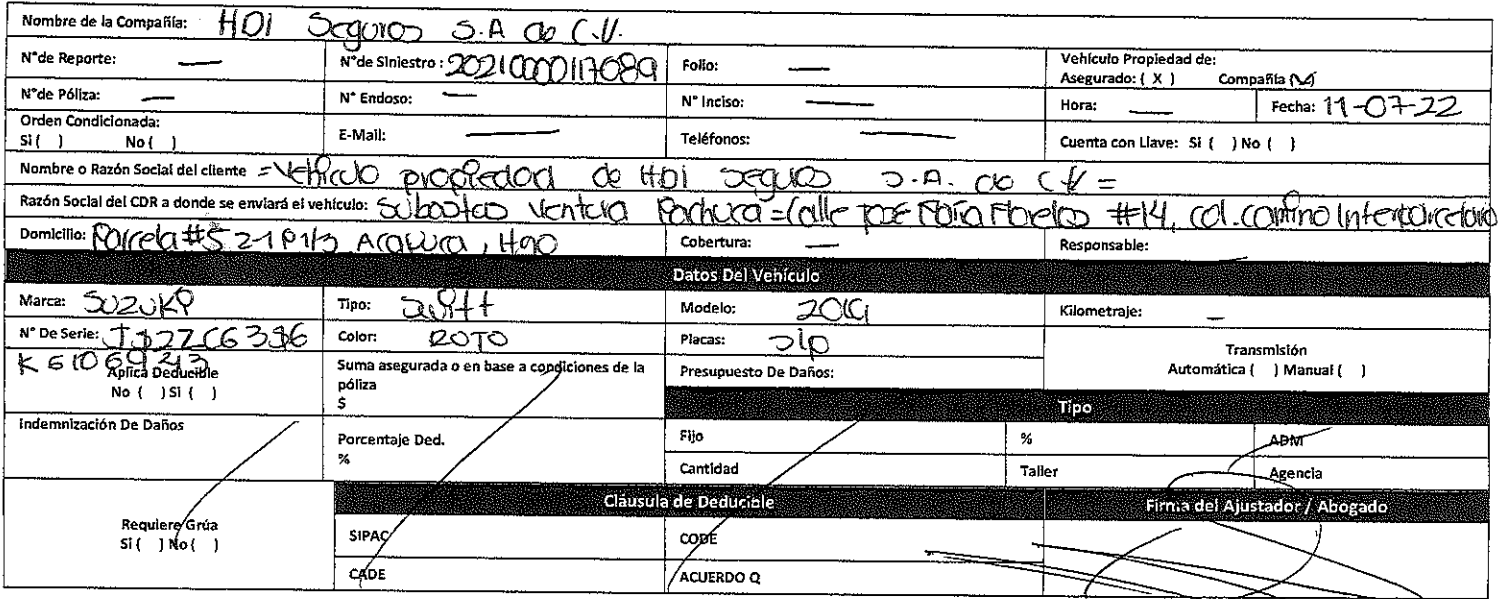 Nombre de la Compañía: HDI Seguros S.A de C.V.
N°de Reporte: — N°de Siniestro: 20210000117089 Folio: — Vehículo Propiedad de:
Asegurado: ( X ) Compañía
N°de Póliza: — N° Endoso: — N° Inciso: — Hora: — Fecha: 11-07-22
Orden Condicionada:
Si ( ) No ( ) E-Mail: — Teléfonos: — Cuenta con Llave: Si ( ) No ( )
Nombre o Razón Social del cliente = Vehículo propiedad de HDI Seguros S.A. de C.V =
Razón Social del CDR a donde se enviará el vehículo: Subastas Ventura Pachuca = Calle José María Morelos #14, col. camino Interparcelario
Domicilio: Parcela #5 21 P1/3 Acayuca, Hgo Cobertura: — Responsable:
Datos Del Vehículo
Marca: SUZUKI Tipo: Swift Modelo: 2019 Kilometraje: —
N° De Serie: JS2ZC63S6 Color: ROJO Placas: S/P Transmisión
K61069213 Automática ( ) Manual ( )
Aplica Deducible
No ( ) Si ( ) Suma asegurada o en base a condiciones de la póliza
$ Presupuesto De Daños:
Tipo
Indemnización De Daños Porcentaje Ded.
% Fijo % ADM
Cantidad Taller Agencia
Cláusula de Deducible Firma del Ajustador / Abogado
Requiere Grúa
Si ( ) No ( ) SIPAC CODE
CADE ACUERDO Q